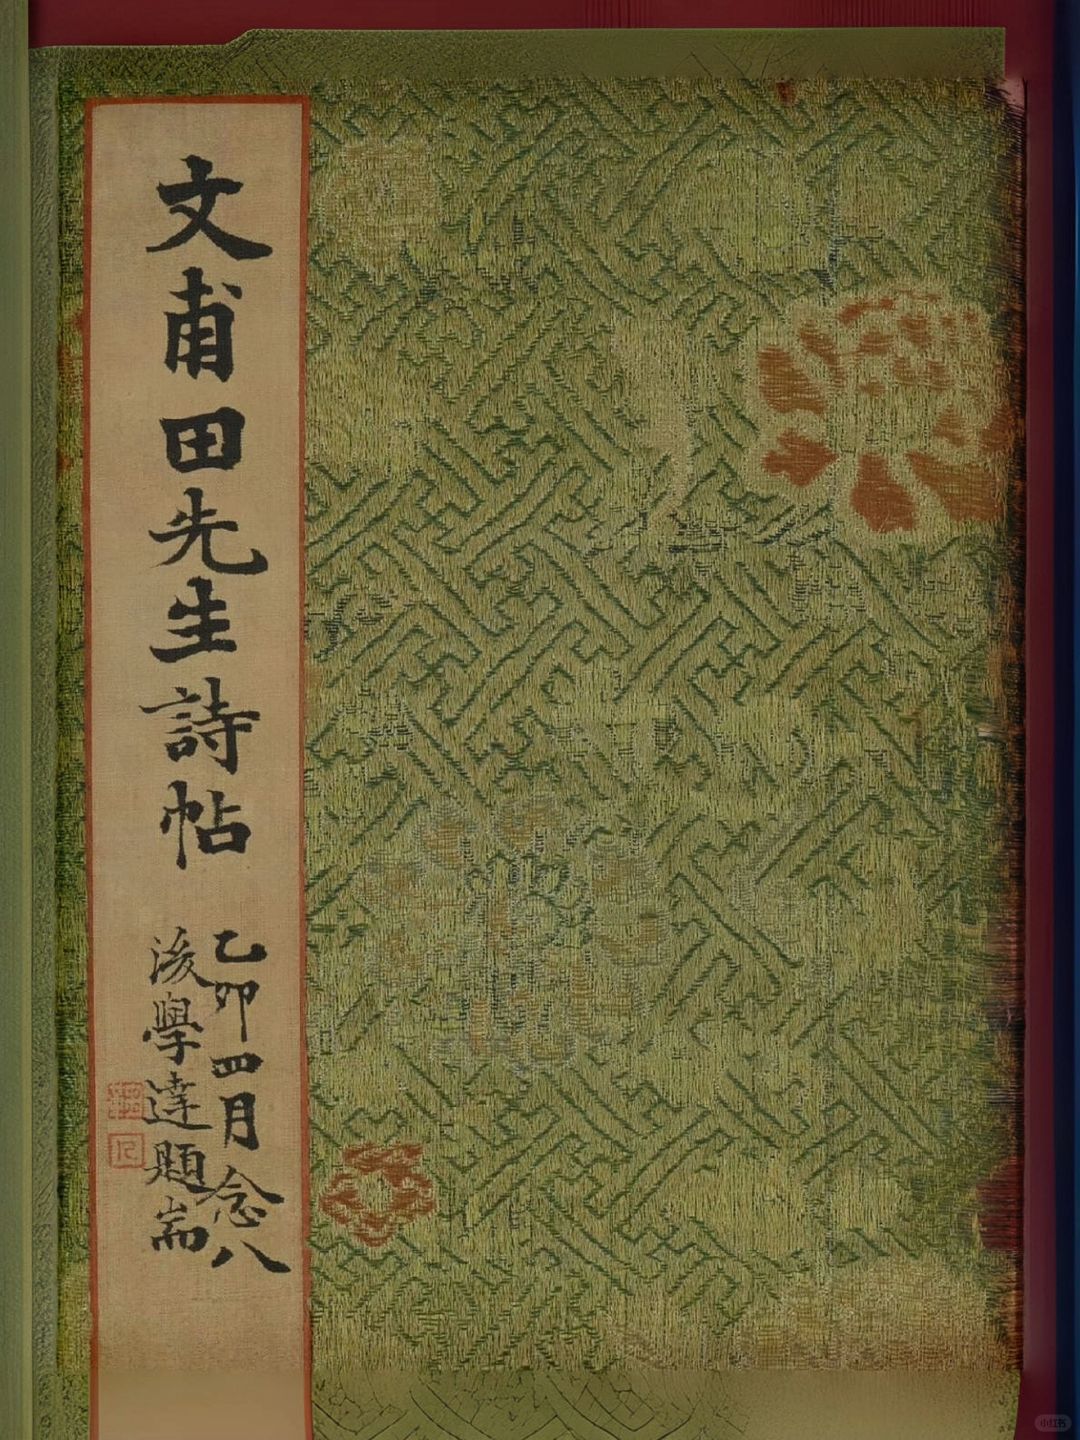 文甫田先生詩帖
乙卯四月念八
後學達題耑
小红书